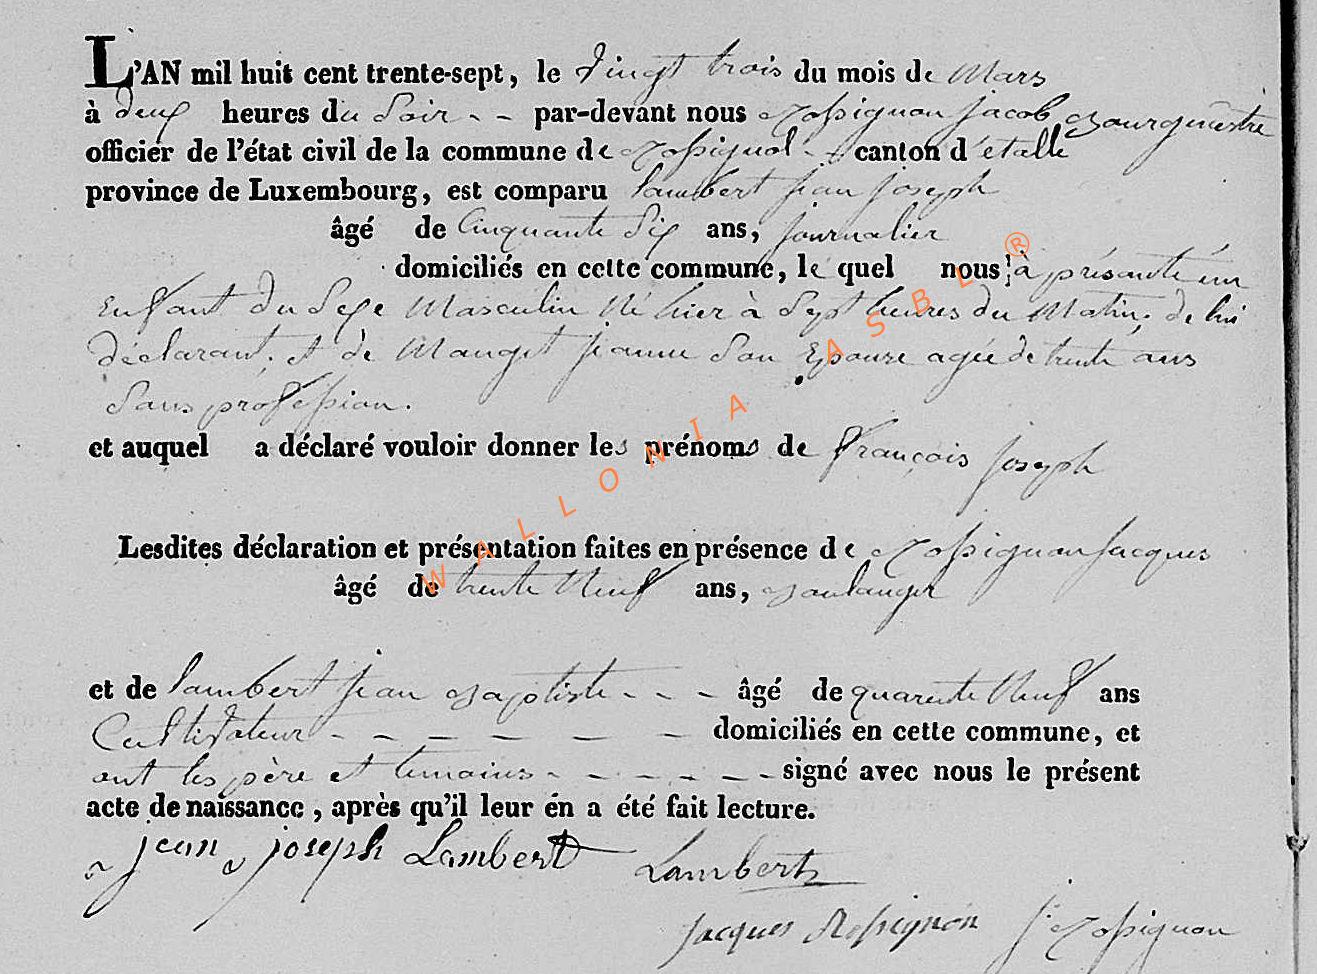 L'AN mil huit cent trente-sept, le Vingt trois du mois de Mars
à deux heures du Soir - - par-devant nous Rossignon jacob Bourgmestre
officier de l'état civil de la commune de Rossignol - canton d'etalle
province de Luxembourg, est comparu lambert jean joseph
âgé de Cinquante Six ans, journalier
domiciliés en cette commune, le quel nous à présanté un
Enfant du Sexe Masculin Né hier à Sept heures du Matin, de lui
déclarant, et de Mauget jeanne Son Epouse agée de trente ans
Sans profession.
et auquel a déclaré vouloir donner les prénoms de françois joseph
Lesdites déclaration et présentation faites en présence de Rossignon jacques
âgé de trente Neuf ans, Boulanger
et de lambert jean Baptiste - - - âgé de quarente Neuf ans
Cultivateur - - - - - - domiciliés en cette commune, et
ont les père et temoins - - - - - - signé avec nous le présent
acte de naissance, après qu'il leur en a été fait lecture.
jean joseph Lambert Lambert
jacques Rossignon j. Rossignon
WALLONIA ASBL ®